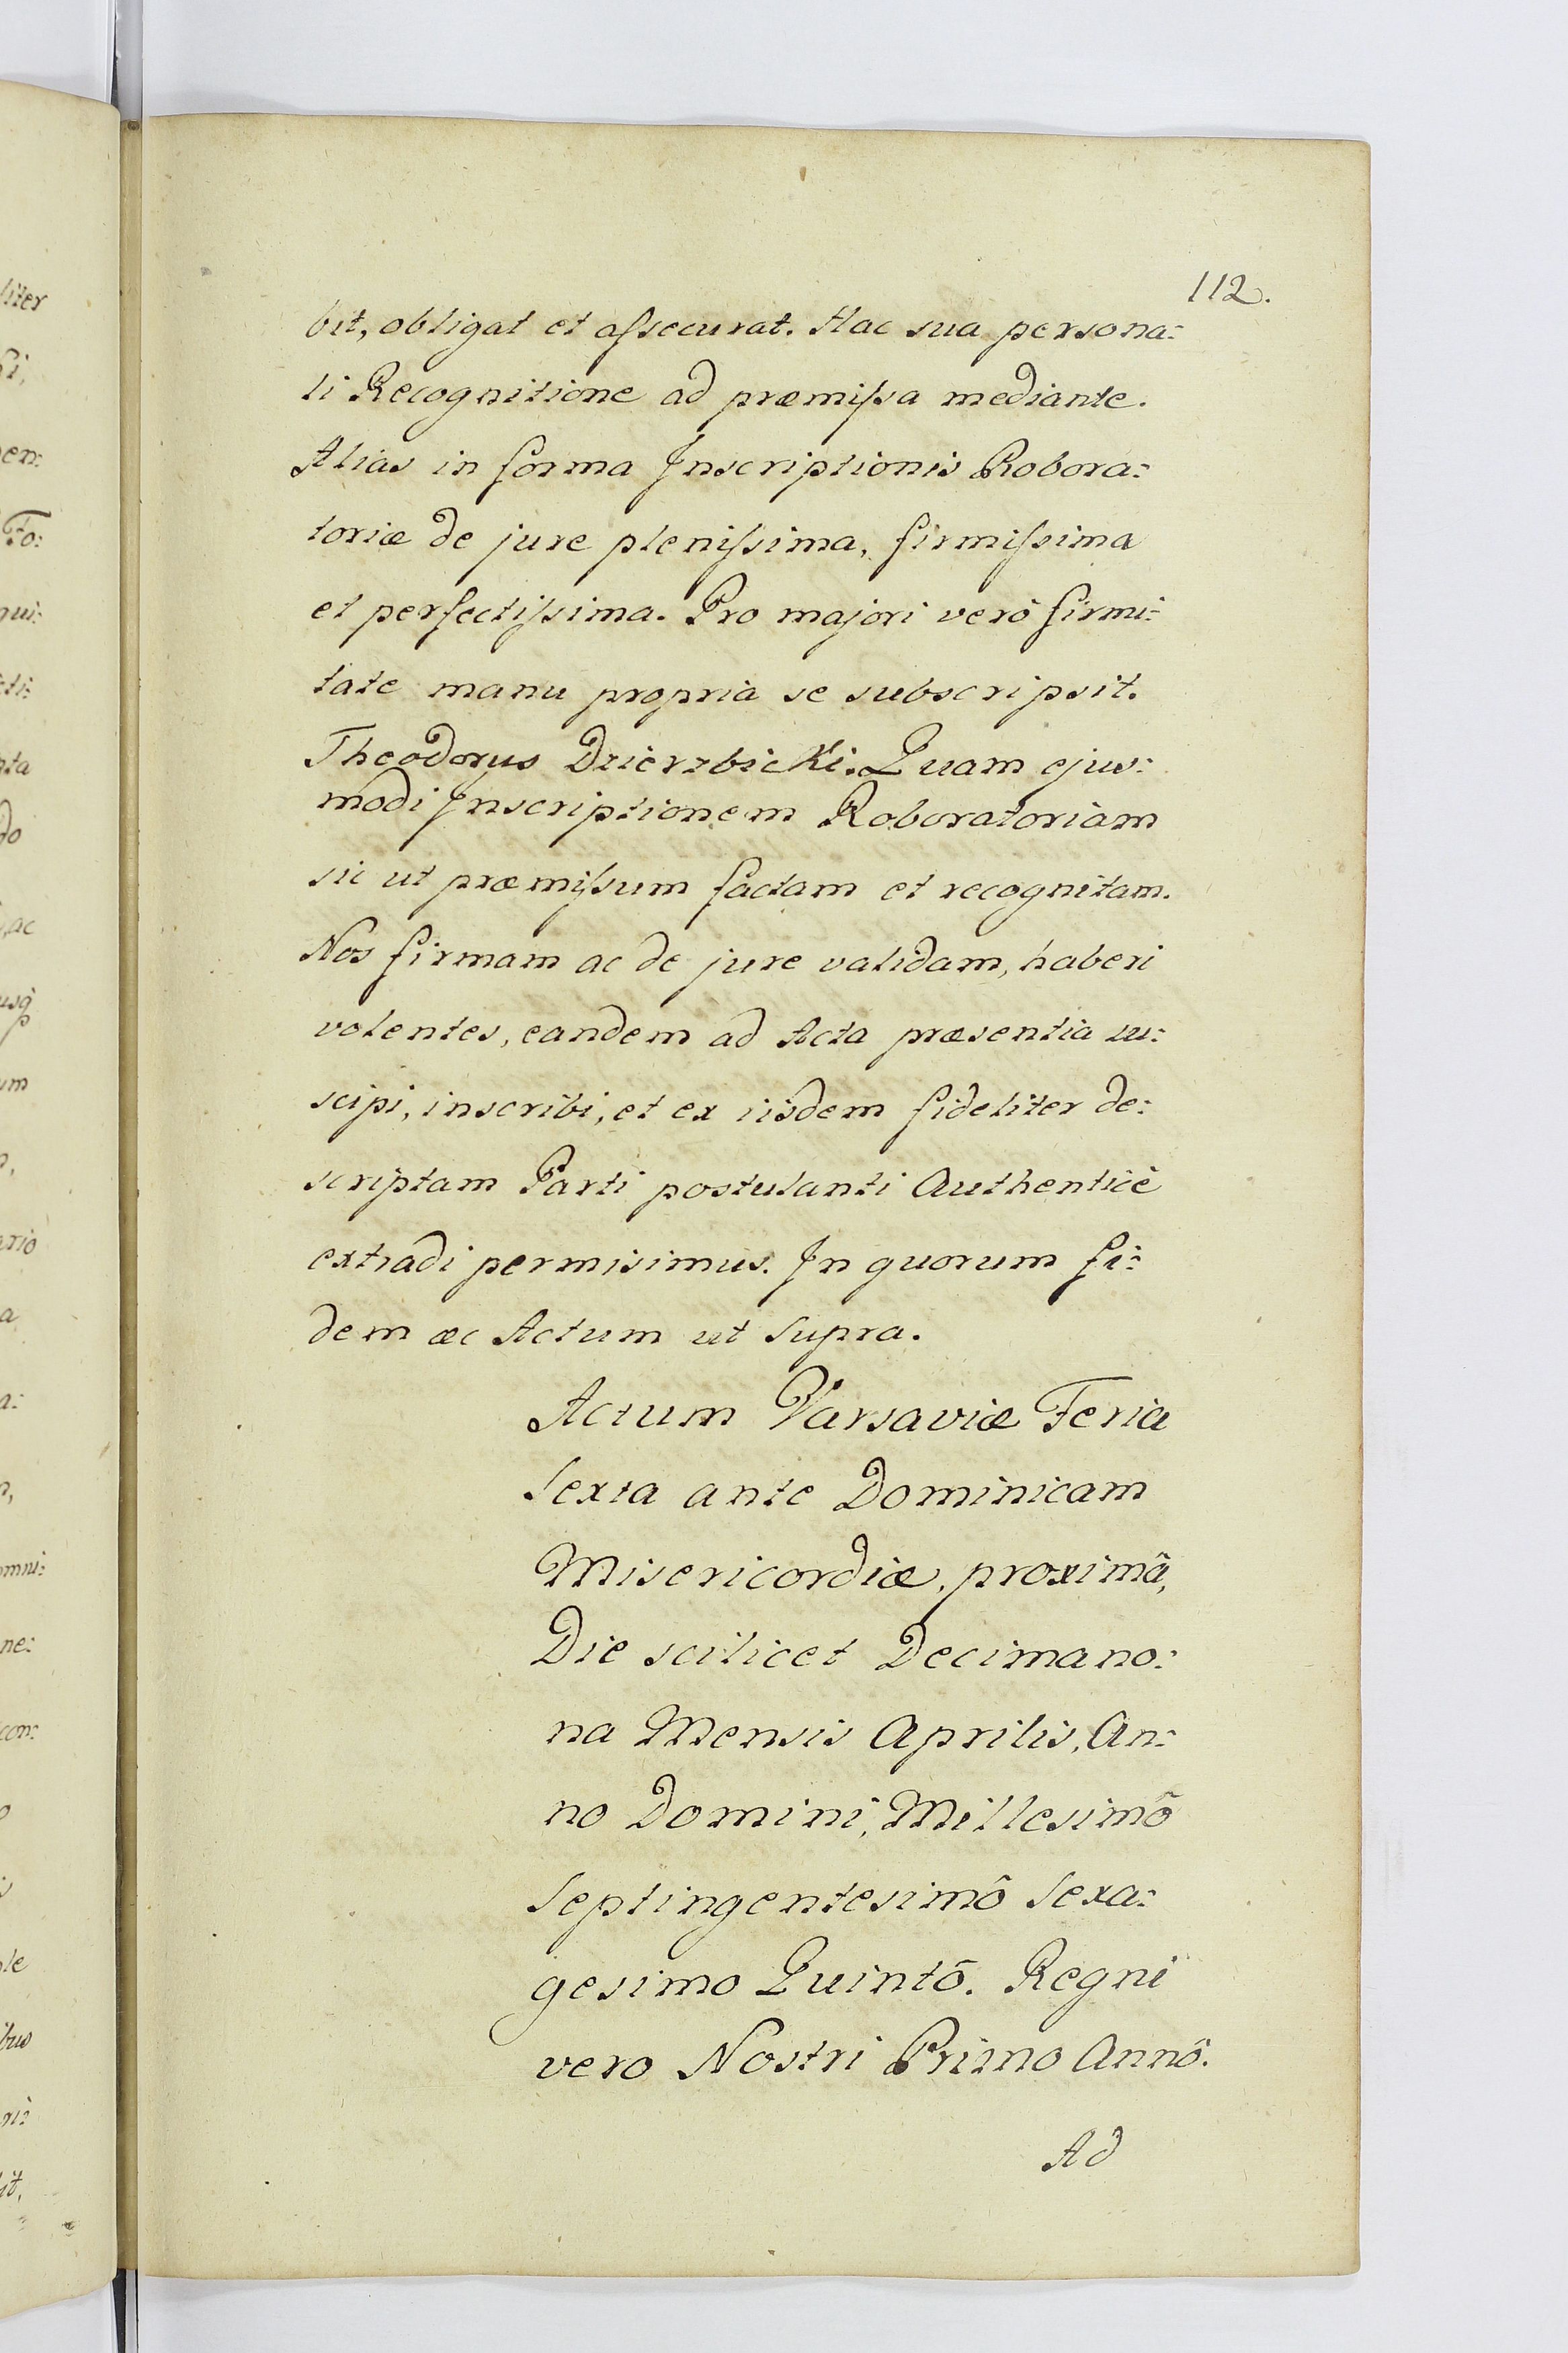 112.
bit, obligat et assecurat. Hac sua persona:
li Recognitione ad præmissa mediante.
Alias in forma Inscriptionis Robora:
toriæ de jure plenissima, firmissima
et perfectissima. Pro majori verò firmi:
tate manu propria se subscripsit.
Theodorus Dzierzbicki. Quam ejus:
modi Inscriptionem Roboratoriam
sic ut præmissum factam et recognitam.
Nos firmam ac de jure validam, haberi
volentes, eandem ad Acta præsentia su:
scipi, inscribi, et ex iisdem fideliter de:
scriptam Parti postulanti Authenticè
extradi permisimus. In quorum fi:
dem æc Actum ut Supra.
Actum Varsaviæ Feria
Sexta ante Dominicam
Misericordiæ, proximâ,
Die scilicet Decimano:
na Mensis Aprilis, An:
no Domini, Millesimô
Septingentesimô Sexa:
gesimo Quintô. Regni
vero Nostri Primo Annô.
Ad
liter
en:
Fo:
qui:
cti:
nta
do
ac
usq
um
ario
a
a:
n,
omni:
ne:
con:
o
is
le
ibus
ri:
it,